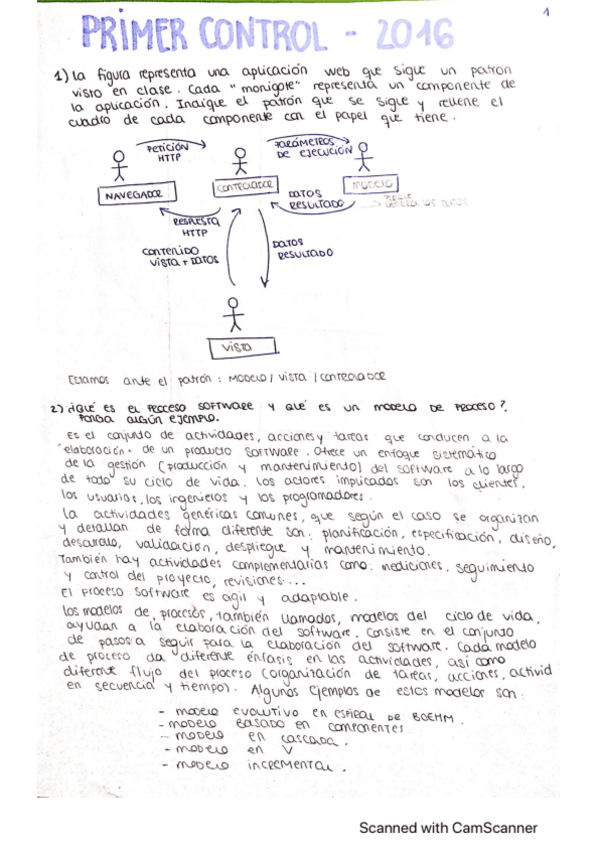 1
PRIMER CONTROL - 2016
1) La figura representa una aplicación web que sigue un patrón
visto en clase. Cada "monigote" representa un componente de
la aplicación. Indique el patrón que se sigue y rellene el
cuadro de cada componente con el papel que tiene.
PETICIÓN
HTTP
PARÁMETROS
DE EJECUCIÓN
NAVEGADOR
CONTROLADOR
MODELO
DATOS
RESULTADO
LOS DATOS
RESPUESTA
HTTP
CONTENIDO
VISTA + DATOS
DATOS
RESULTADO
VISTA
Estamos ante el patrón : MODELO / VISTA / CONTROLADOR
2) ¿QUÉ ES EL PROCESO SOFTWARE Y QUÉ ES UN MODELO DE PROCESO?.
PONGA ALGÚN EJEMPLO.
Es el conjunto de actividades, acciones y tareas que conducen a la
"elaboración" de un producto software. Ofrece un enfoque sistemático
de la gestión (producción y mantenimiento) del software a lo largo
de todo su ciclo de vida. Los actores implicados son los clientes,
los usuarios, los ingenieros y los programadores.
La actividades genéricas comunes, que según el caso se organizan
y detallan de forma diferente son: planificación, especificación, diseño,
desarrollo, validación, despliegue y mantenimiento.
También hay actividades complementarias como: mediciones, seguimiento
y control del proyecto, revisiones...
El proceso software es ágil y adaptable.
Los modelos de procesos, también llamados, modelos del ciclo de vida,
ayudan a la elaboración del software. Consiste en el conjunto
de pasos a seguir para la elaboración del software. Cada modelo
de proceso da diferente énfasis en las actividades, así como
diferente flujo del proceso (organización de tareas, acciones, activid
en secuencia y tiempo). Algunos ejemplos de estos modelos son:
- modelo evolutivo en espiral de BOEHM.
- modelo basado en componentes
- modelo en cascada.
- modelo en V
- modelo incremental.
Scanned with CamScanner